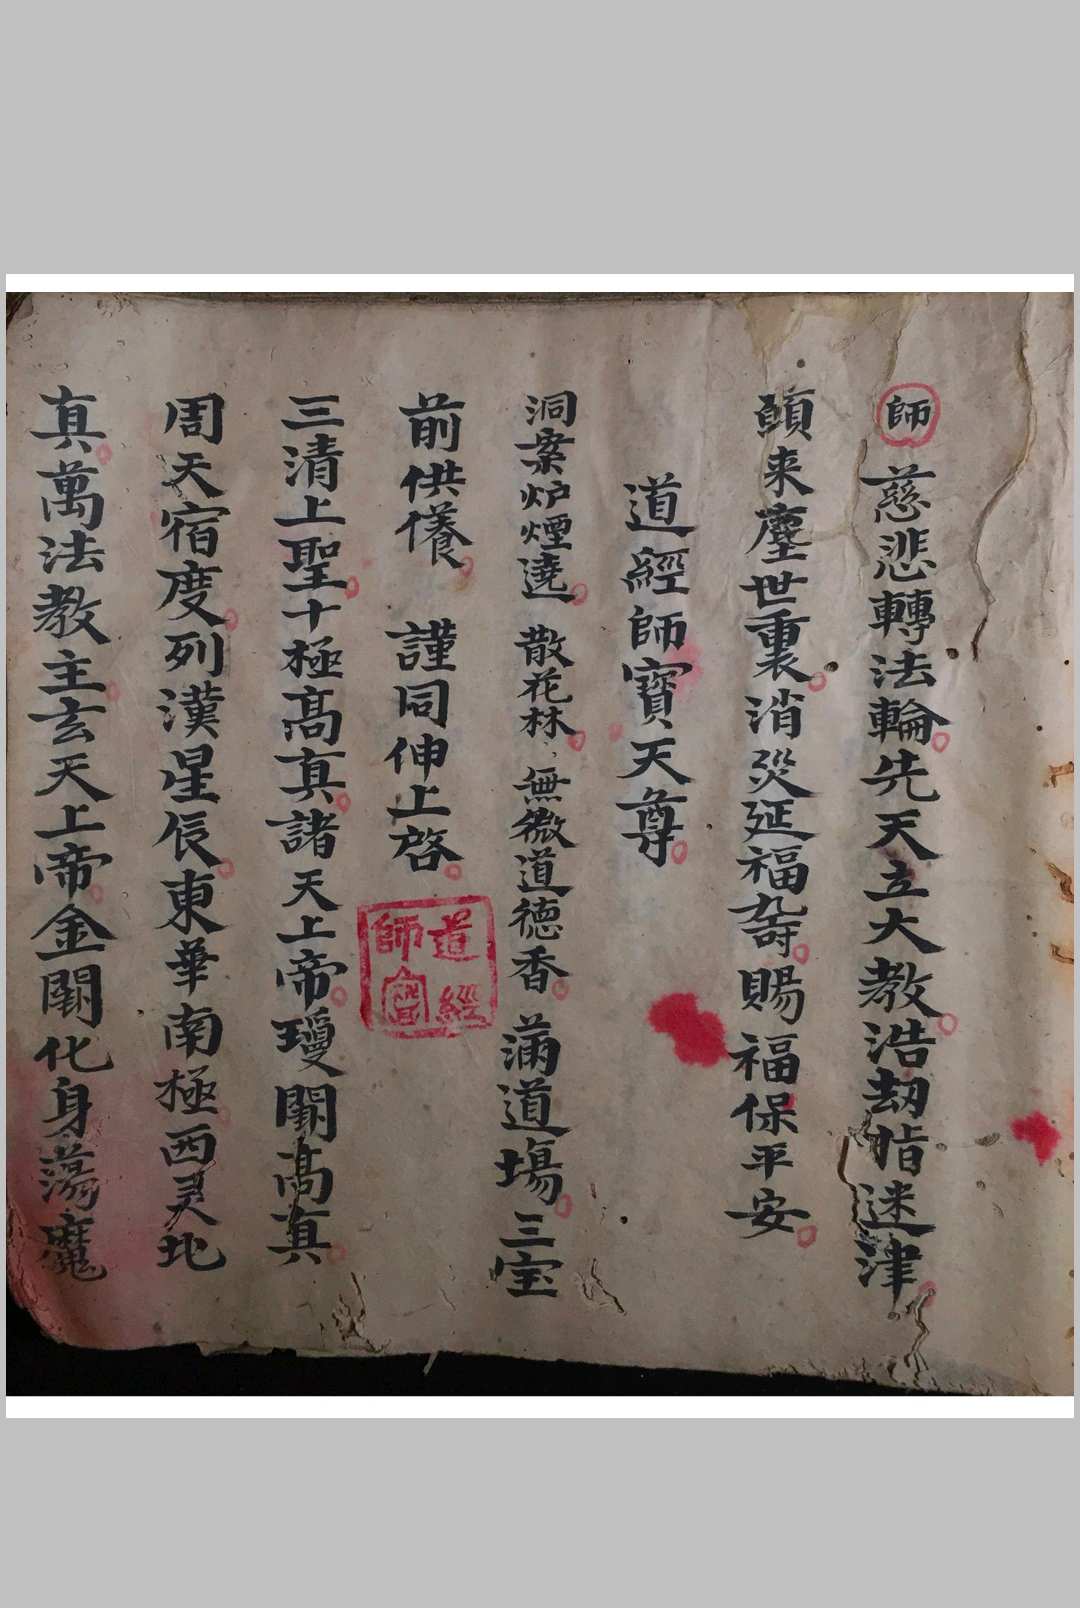 師 慈悲轉法輪先天立大教浩劫指迷津
願来塵世裏消災延福壽賜福保平安
道經師寶天尊
洞案炉煙遶 散花林 無微道德香 滿道塲三宝
前供養 謹同伸上啓
道經師寶
三清上聖十極髙真諸天上帝瓊闕髙真
周天宿度列漢星辰東華南極西灵北
真萬法教主玄天上帝金闕化身蕩魔